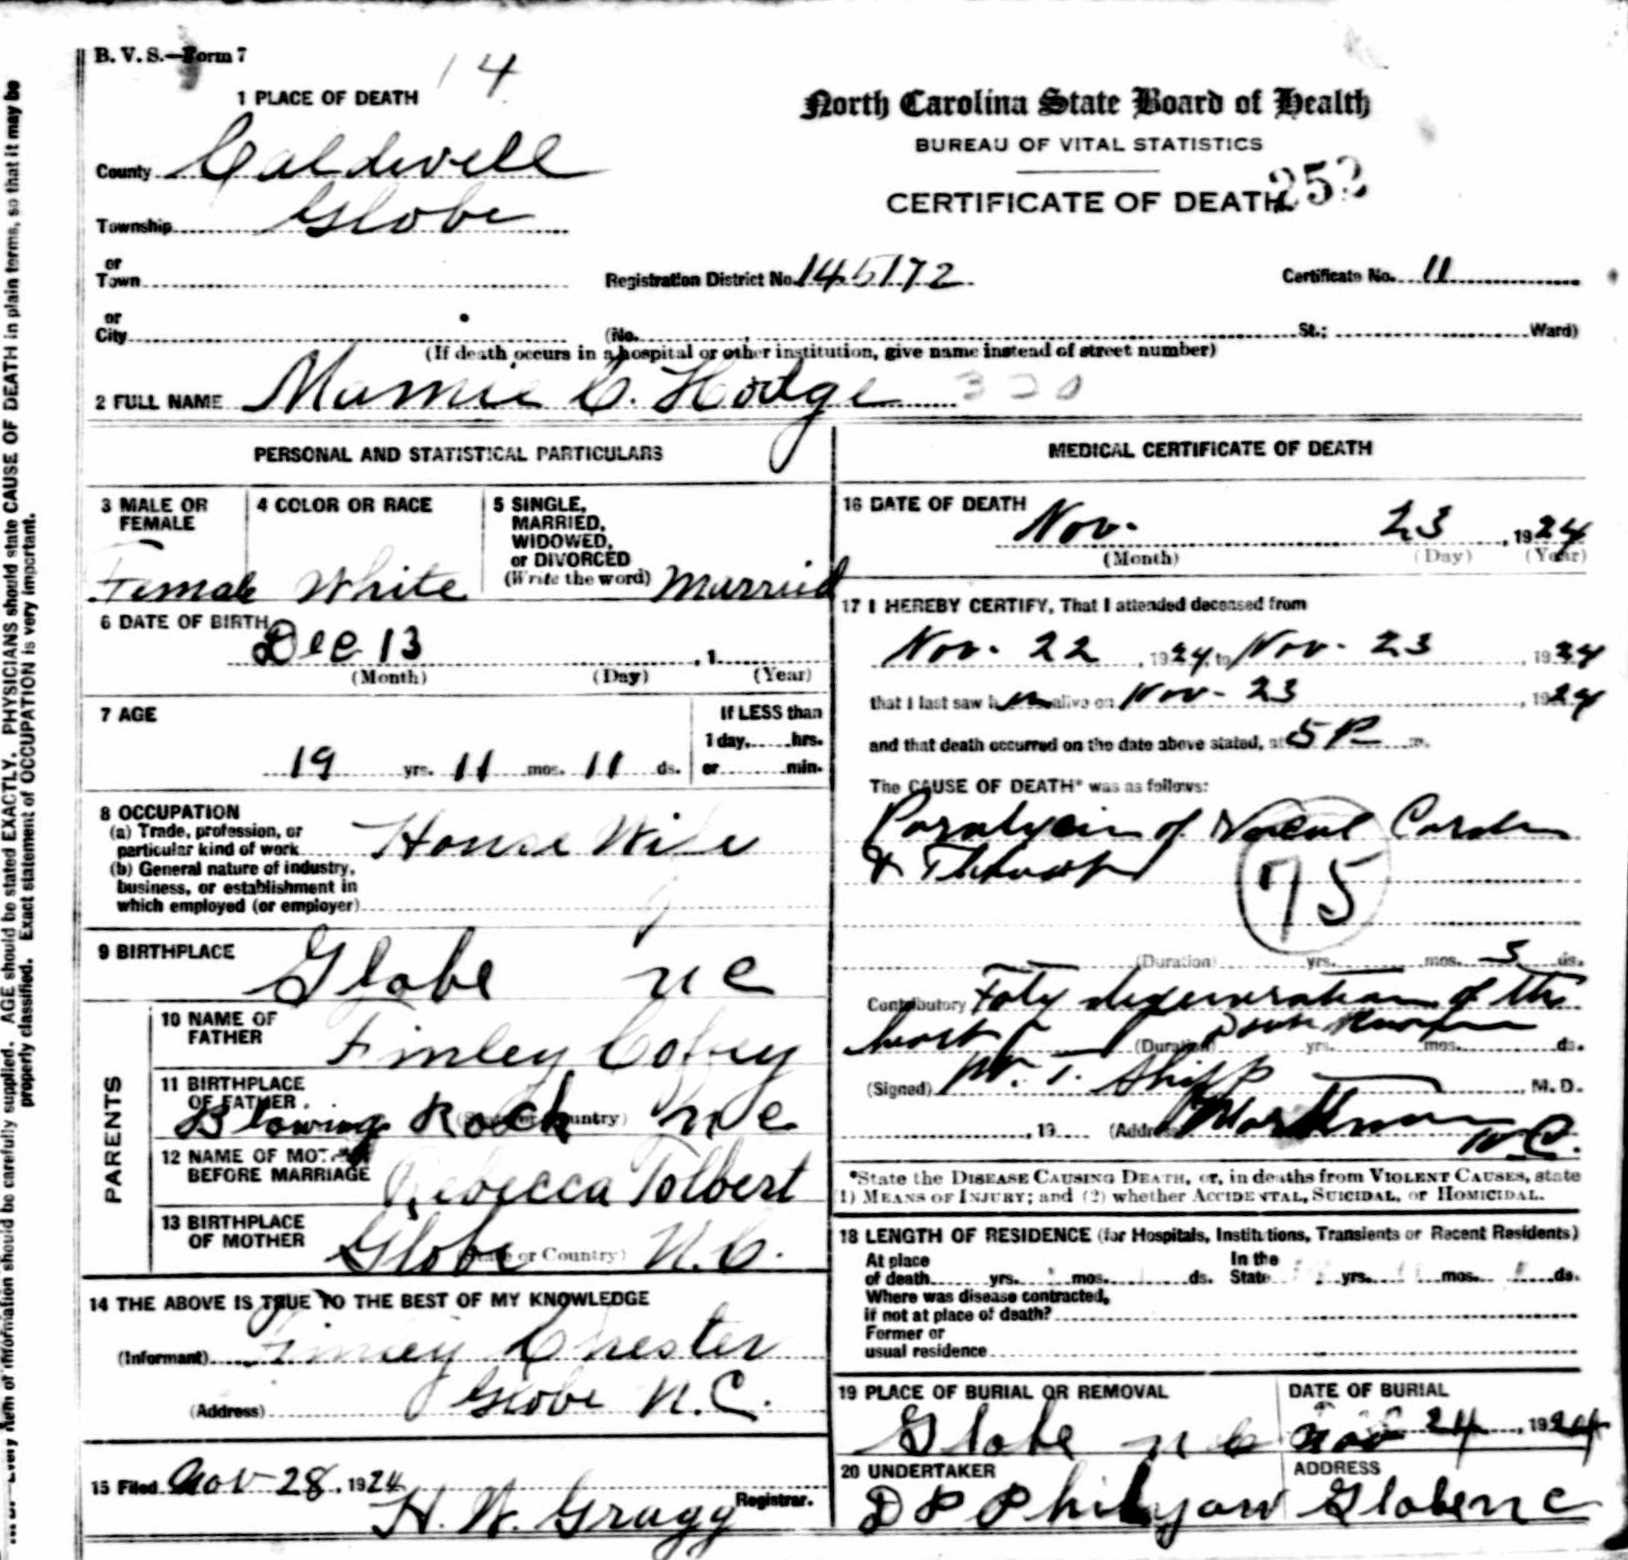 B. V. S.—Form 7
14
1 PLACE OF DEATH
North Carolina State Board of Health
BUREAU OF VITAL STATISTICS
CERTIFICATE OF DEATH
County Caldwell
Township Globe
or
Town
Registration District No. 145172
Certificate No. 11
or
City
(No. St.; Ward)
(If death occurs in a hospital or other institution, give name instead of street number)
2 FULL NAME Mamie C. Hodge 320
PERSONAL AND STATISTICAL PARTICULARS
3 MALE OR FEMALE
Female
4 COLOR OR RACE
White
5 SINGLE,
MARRIED,
WIDOWED,
or DIVORCED
(Write the word) Married
6 DATE OF BIRTH
Dec 13 , 1
(Month) (Day) (Year)
7 AGE
19 yrs. 11 mos. 11 ds.
If LESS than
1 day, hrs.
or min.
8 OCCUPATION
(a) Trade, profession, or
particular kind of work House Wife
(b) General nature of industry,
business, or establishment in
which employed (or employer)
9 BIRTHPLACE
Globe N C
PARENTS
10 NAME OF
FATHER Finley Cofey
11 BIRTHPLACE
OF FATHER
Blowing Rock N C
12 NAME OF MOTHER
BEFORE MARRIAGE Rebecca Tolbert
13 BIRTHPLACE
OF MOTHER Globe N.C.
(State or Country)
14 THE ABOVE IS TRUE TO THE BEST OF MY KNOWLEDGE
(Informant) Finley Chester
(Address) Globe N.C.
15 Filed Nov 28, 1924
H. W. Gragg Registrar.
MEDICAL CERTIFICATE OF DEATH
16 DATE OF DEATH
Nov. 23 , 1924
(Month) (Day) (Year)
17 I HEREBY CERTIFY, That I attended deceased from
Nov. 22 , 1924, to Nov. 23 , 1924
that I last saw h alive on Nov - 23 , 1924
and that death occurred on the date above stated, at 5 P m.
The CAUSE OF DEATH* was as follows:
Paralysis of Vocal Cords
&
75
(Duration) yrs. mos. 5 ds.
Contributory Faty degeneration of the
heart
(Duration) yrs. mos. ds.
(Signed) W. T. Shipp , M. D.
, 19 (Address) Mortimer
N.C.
*State the DISEASE CAUSING DEATH, or, in deaths from VIOLENT CAUSES, state
(1) MEANS OF INJURY; and (2) whether ACCIDENTAL, SUICIDAL, or HOMICIDAL.
18 LENGTH OF RESIDENCE (for Hospitals, Institutions, Transients or Recent Residents)
At place In the
of death yrs. mos. ds. State yrs. mos. ds.
Where was disease contracted,
if not at place of death?
Former or
usual residence
19 PLACE OF BURIAL OR REMOVAL
Globe N C
DATE OF BURIAL
Nov 24 , 1924
20 UNDERTAKER
D P Philyaw
ADDRESS
Globe N C
AGE should be stated EXACTLY. PHYSICIANS should state CAUSE OF DEATH in plain terms, so that it may be
properly classified. Exact statement of OCCUPATION is very important.
Every item of information should be carefully supplied.